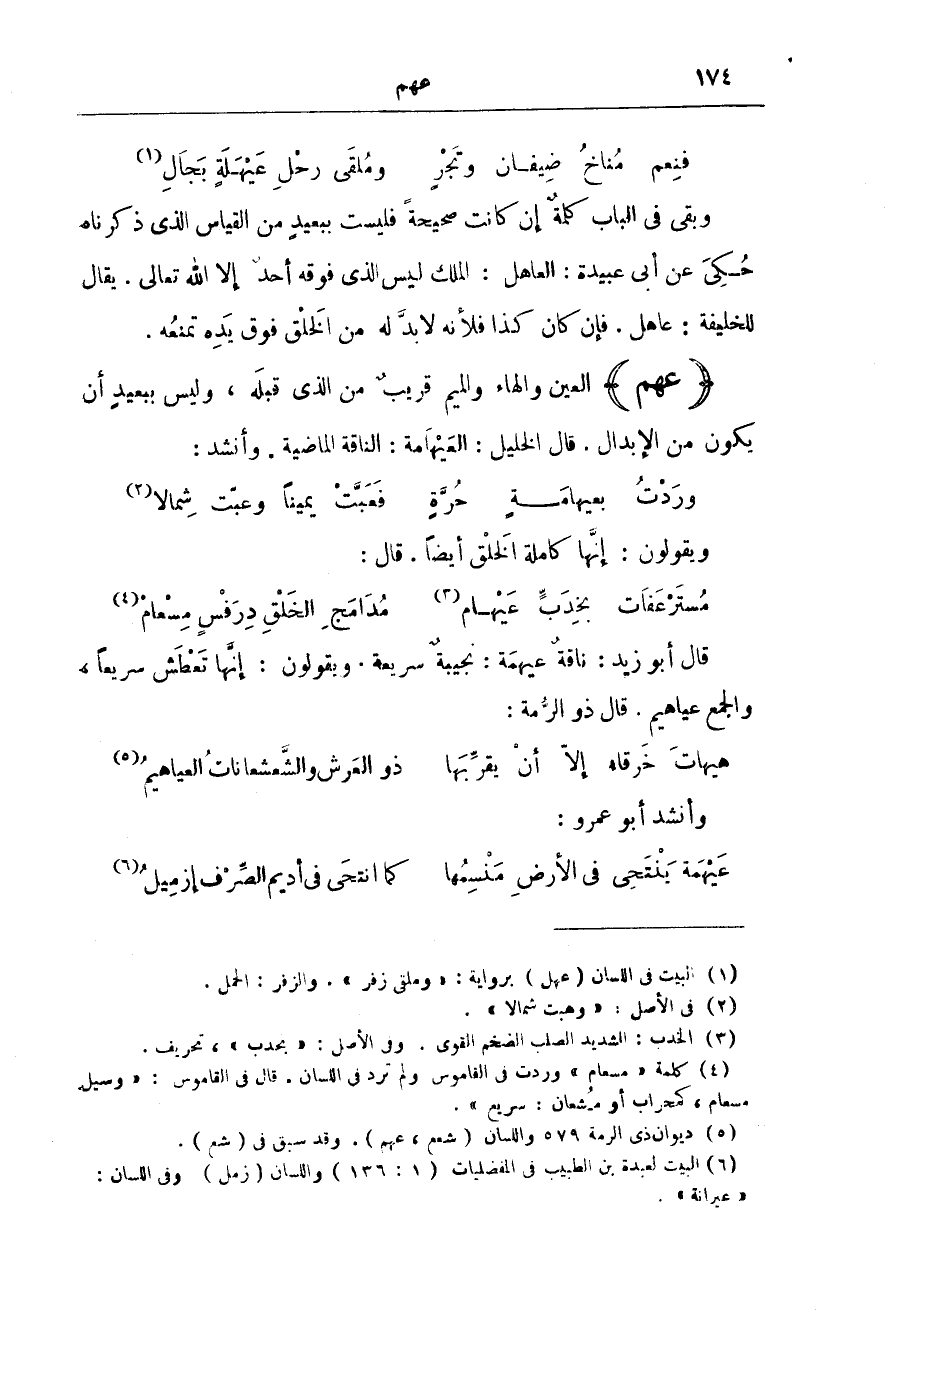 ١٧٤
عهم
فنِعم مُناخُ ضِيفـان وتَجْرٍ ومُلقَى رحْلِ عَيْهـَلَةٍ بَجَالِ(١)
وبقى فى الباب كلمةٌ إن كانت صحيحةً فليست ببعيدٍ من القياس الذى ذكرناه
حُـكِىَ عن أبى عبيدة : العاهل : الملك ليس الذى فوقه أحدٌ إلا الله تعالى . يقال
للخليفة : عاهل . فإن كان كذا فلأنه لابدَّ له من الخَلْق فوق يَدِه تمنعُه .
﴿ عهم ﴾ العين والهاء والميم قريبٌ من الذى قبلَه ، وليس ببعيدٍ أن
يكون من الإبدال . قال الخليل : العَيْهَامة : الناقة الماضية . وأنشد :
وردْتُ بعيهامـــةٍ حُرَّةٍ فَعَبَّتْ يميناً وعبّت شِمالا(٢)
ويقولون : إنَّها كاملة الخَلْق أيضاً . قال :
مُستَرْعَفَات بخِدَبٍّ عَيْهـام(٣) مُدَامَجِ الخَلْقِ دِرَفْسٍ مِسْعامْ(٤)
قال أبو زيد : ناقةٌ عيهمَة : نجيبةٌ سريعة . ويقولون : إنَّها تَعْطَش سريعاً ،
والجمع عياهيم . قال ذو الرُّمة :
هيهاتَ خَرقاه إلاّ أنْ يقرِّبَها ذو العَرش والشَّعشعاناتُ العياهيمُ(٥)
وأنشد أبو عمرو :
عَيْهَمة يَنْتَحِى فى الأرضِ مَنْسِمُها كما انتحَى فى أديم الصِّرْف إزميلُ(٦)
(١) البيت فى اللسان ( عهل ) برواية : « وملقى زفر » . والزفر : الحمل .
(٢) فى الأصل : « وهبت شمالا » .
(٣) الخدب : الشديد الصلب الضخم القوى . وفى الأصل : « بحدب » ، تحريف .
(٤) كلمة « مسعام » وردت فى القاموس ولم ترد فى اللسان . قال فى القاموس : « وسيل
مسعام ، كمحراب أو مشعان : سريع » .
(٥) ديوان ذى الرمة ٥٧٩ واللسان ( شعم ، عهم ) . وقد سبق فى ( شع ) .
(٦) البيت لعبدة بن الطبيب فى المفضليات ( ١ : ١٣٦ ) واللسان ( زمل ) وفى اللسان :
« عيرانة » .